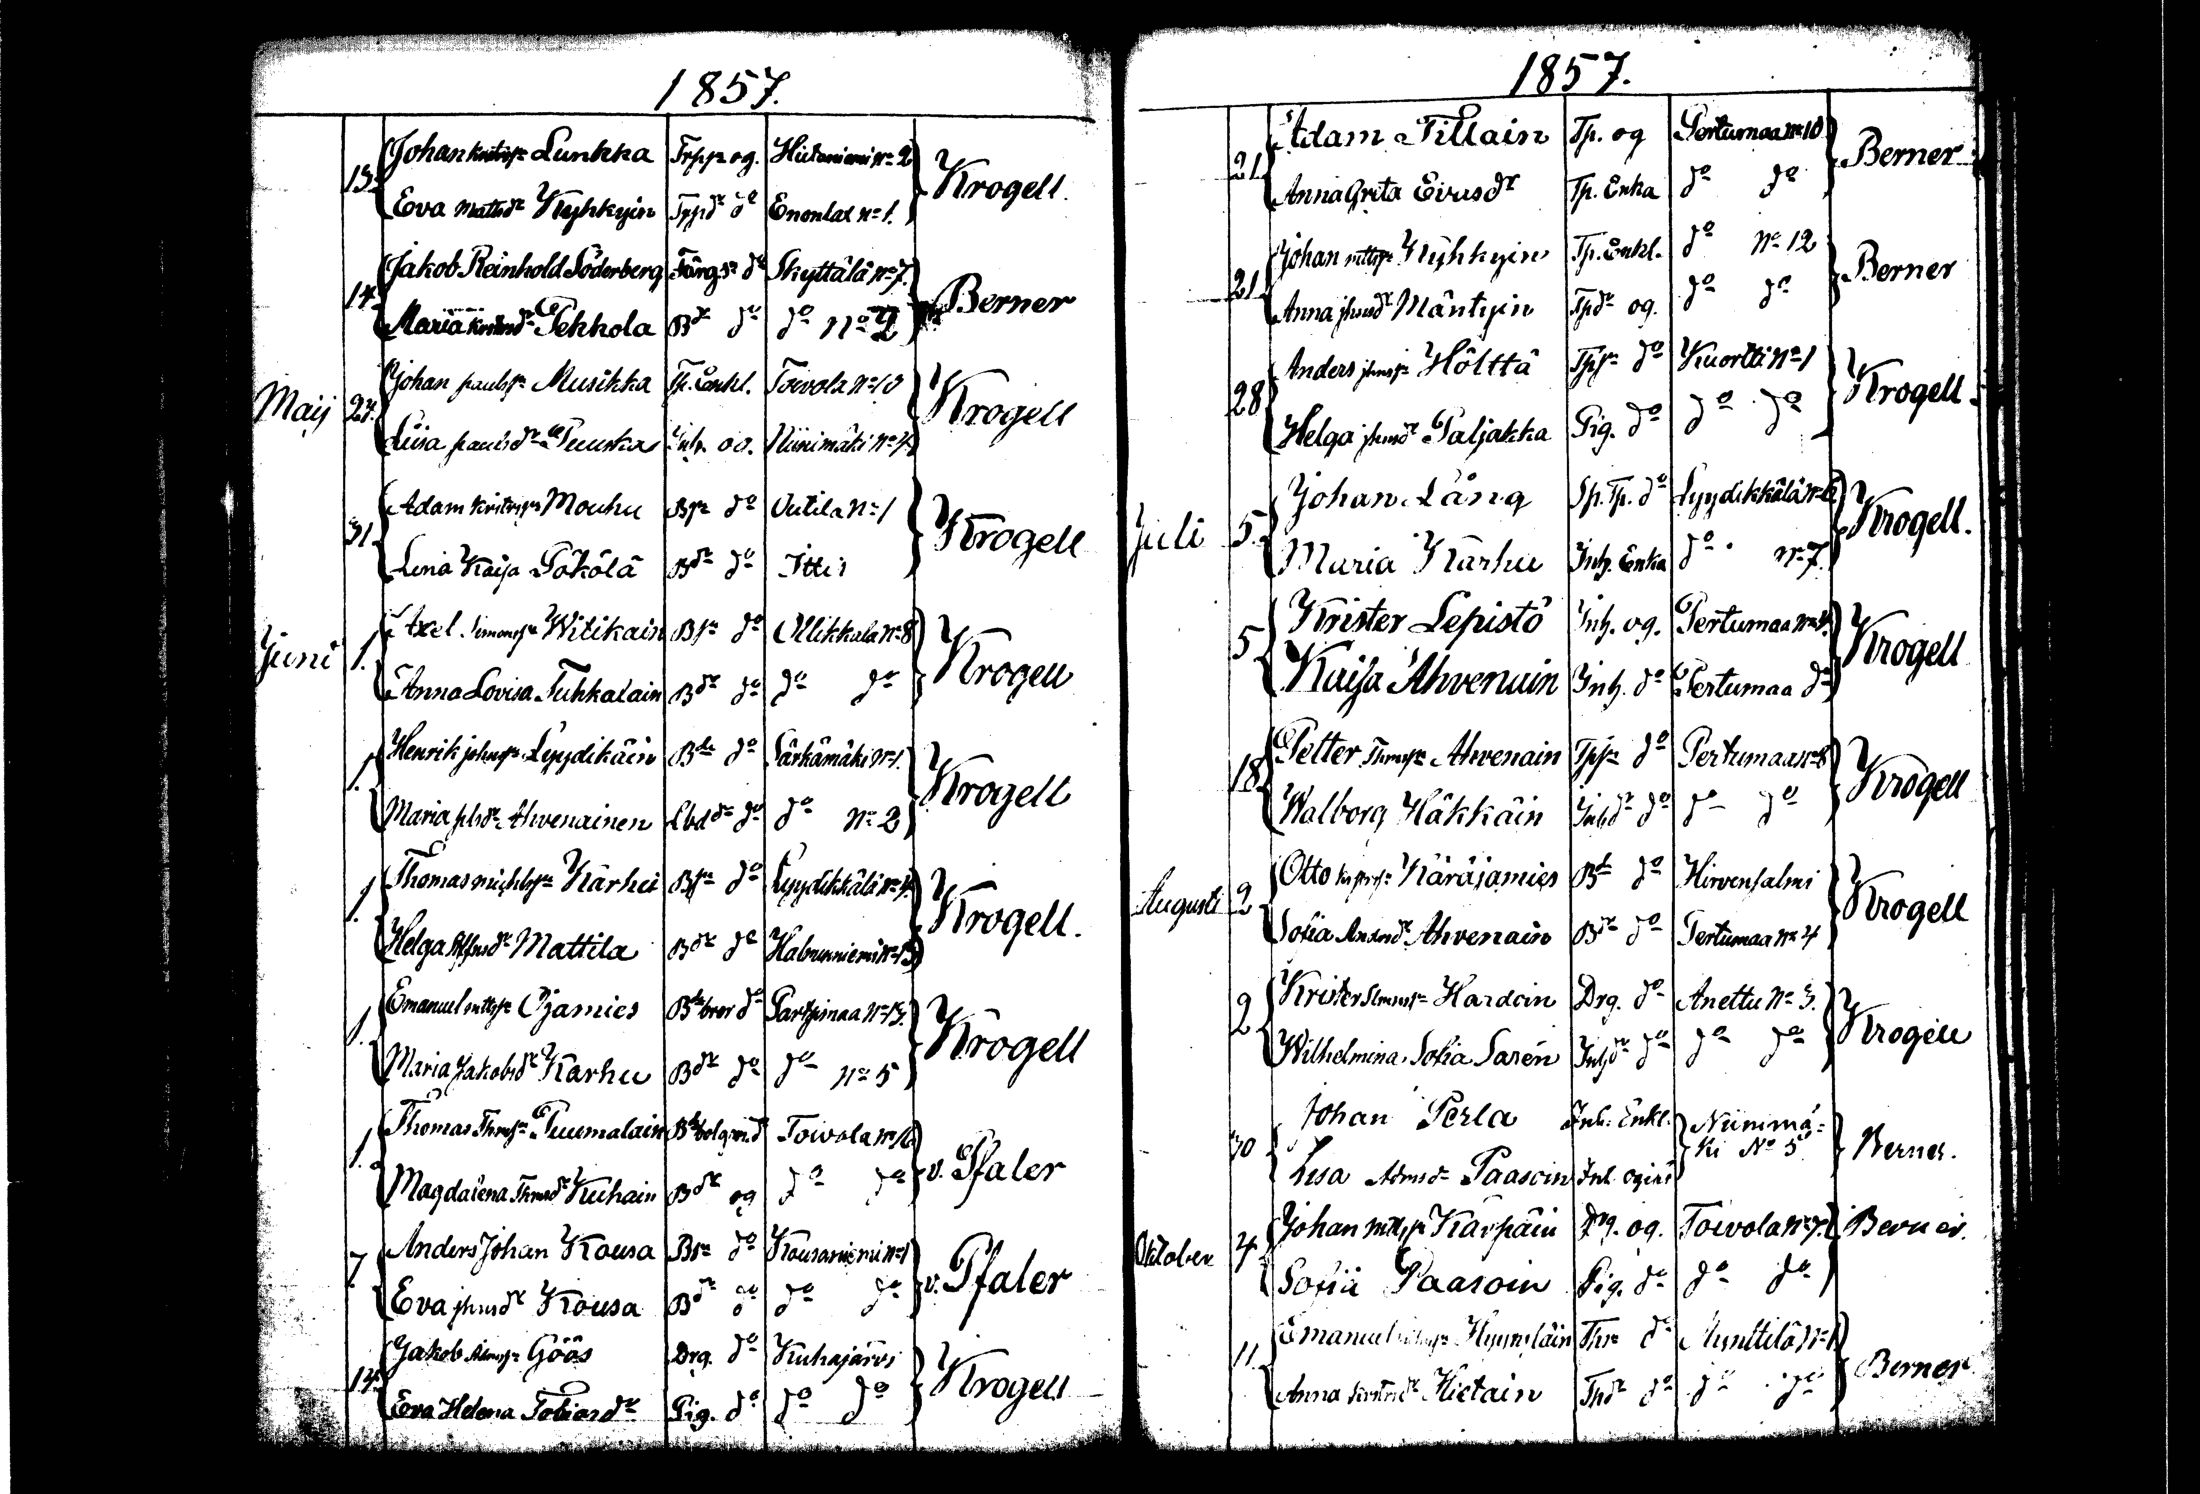 1857.
13. Johan Lunkka Trpp og. Hietaniemi No 2 Krogell.
Eva Mattsdr Kyhkyin Tppdr do Enonlax No 1.
14. Jakob Reinhold Söderberg do Skyttälä No 7. Berner
Maria Pekkola Bdr do do No 2
Maij 24. Johan paulsn Musikka Tp. Enkl. Toivola No 10 Krogell
Liisa paulsdr Puuska Inh. og. Niinimäki No 4
31 Adam Mouhu Bsn do Outila No 1 Krogell
Lena Kaija Pökölä Bdr do Itti
Juni 1. Axel Simonsn Witikain Bsn do Ollikkala No 8 Krogell
Anna Lovisa Tuhkalain Bdr do do do
1. Henrik johnsn Lyydikäin Bde do Särkämäki No 1. Krogell
Maria Ahvenainen Lbddr do do No 2
1. Thomas michlsn Kärhu Bsn do Lyydikkälä No 4. Krogell.
Helga Mattila Bdr do Halmeniemi No 13
1. Emanuel mattsn Ojamies Bdebror do Partsimaa No 13. Krogell
Maria Jakobsdr Karhu Bdr do do No 5
1. Thomas Thmsn Puumalain Toivola No 16 v. Pfaler
Magdalena Thmsdr Kuhain Bdr og do do
7 Anders Johan Kousa Bsn do Kousaniemi No 1 v. Pfaler
Eva jhnsdr Kousa Bdr do do do
14. Jakob Admsn Göös Drg. do Kuhajärvi Krogell
Eva Helena Tobiasdr Pig. do do do
1857.
21 Adam Pillain Tp. og Pertumaa No 10 Berner
Anna Greta Eivusdr Tp. Enka do do
21 Johan mttsn Kyhkyin Tp. Enkl. do No 12 Berner
Anna jhnsdr Mäntyin Tpdr og. do do
28 Anders jhnsn Hölttä Tpsn do Kuortti No 1 Krogell.
Helga jhnsdr Paljakka Pig. do do do
Juli 5 Johan Lång Sp. Tp. do Lyydikkälä Krogell.
Maria Kärhu Inh. Enka do No 7.
5 Krister Lepistö Inh. og. Pertumaa No 4. Krogell
Kaisa Ahvenain Inh. do Pertumaa do
18 Petter Thmsn Ahvenain Tpsn do Pertumaa No 8 Krogell
Walborg Häkkäin Inhdr do do do
Augusti 2 Otto Käräjämies Bd do Hirvensalmi Krogell
Sofia Andersdr Ahvenain Bdr do Pertumaa No 4
2 Krister Hardoin Drg. do Anettu No 3. Krogell
Wilhelmina Sofia Sarén Inhdr do do do
30 Johan Perla Inh. Enkl. Niinimä-
ki No 5 Berner.
Lisa Admsdr Paasoin Inh. ogift
Oktober 4 Johan mttsn Karpäin Drg. og. Toivola No 7. Berner.
Sofia Paasoin Pig. do do do
11 Emanuel Hyyryläin do Mynttilä Berner
Anna Hietain do do do